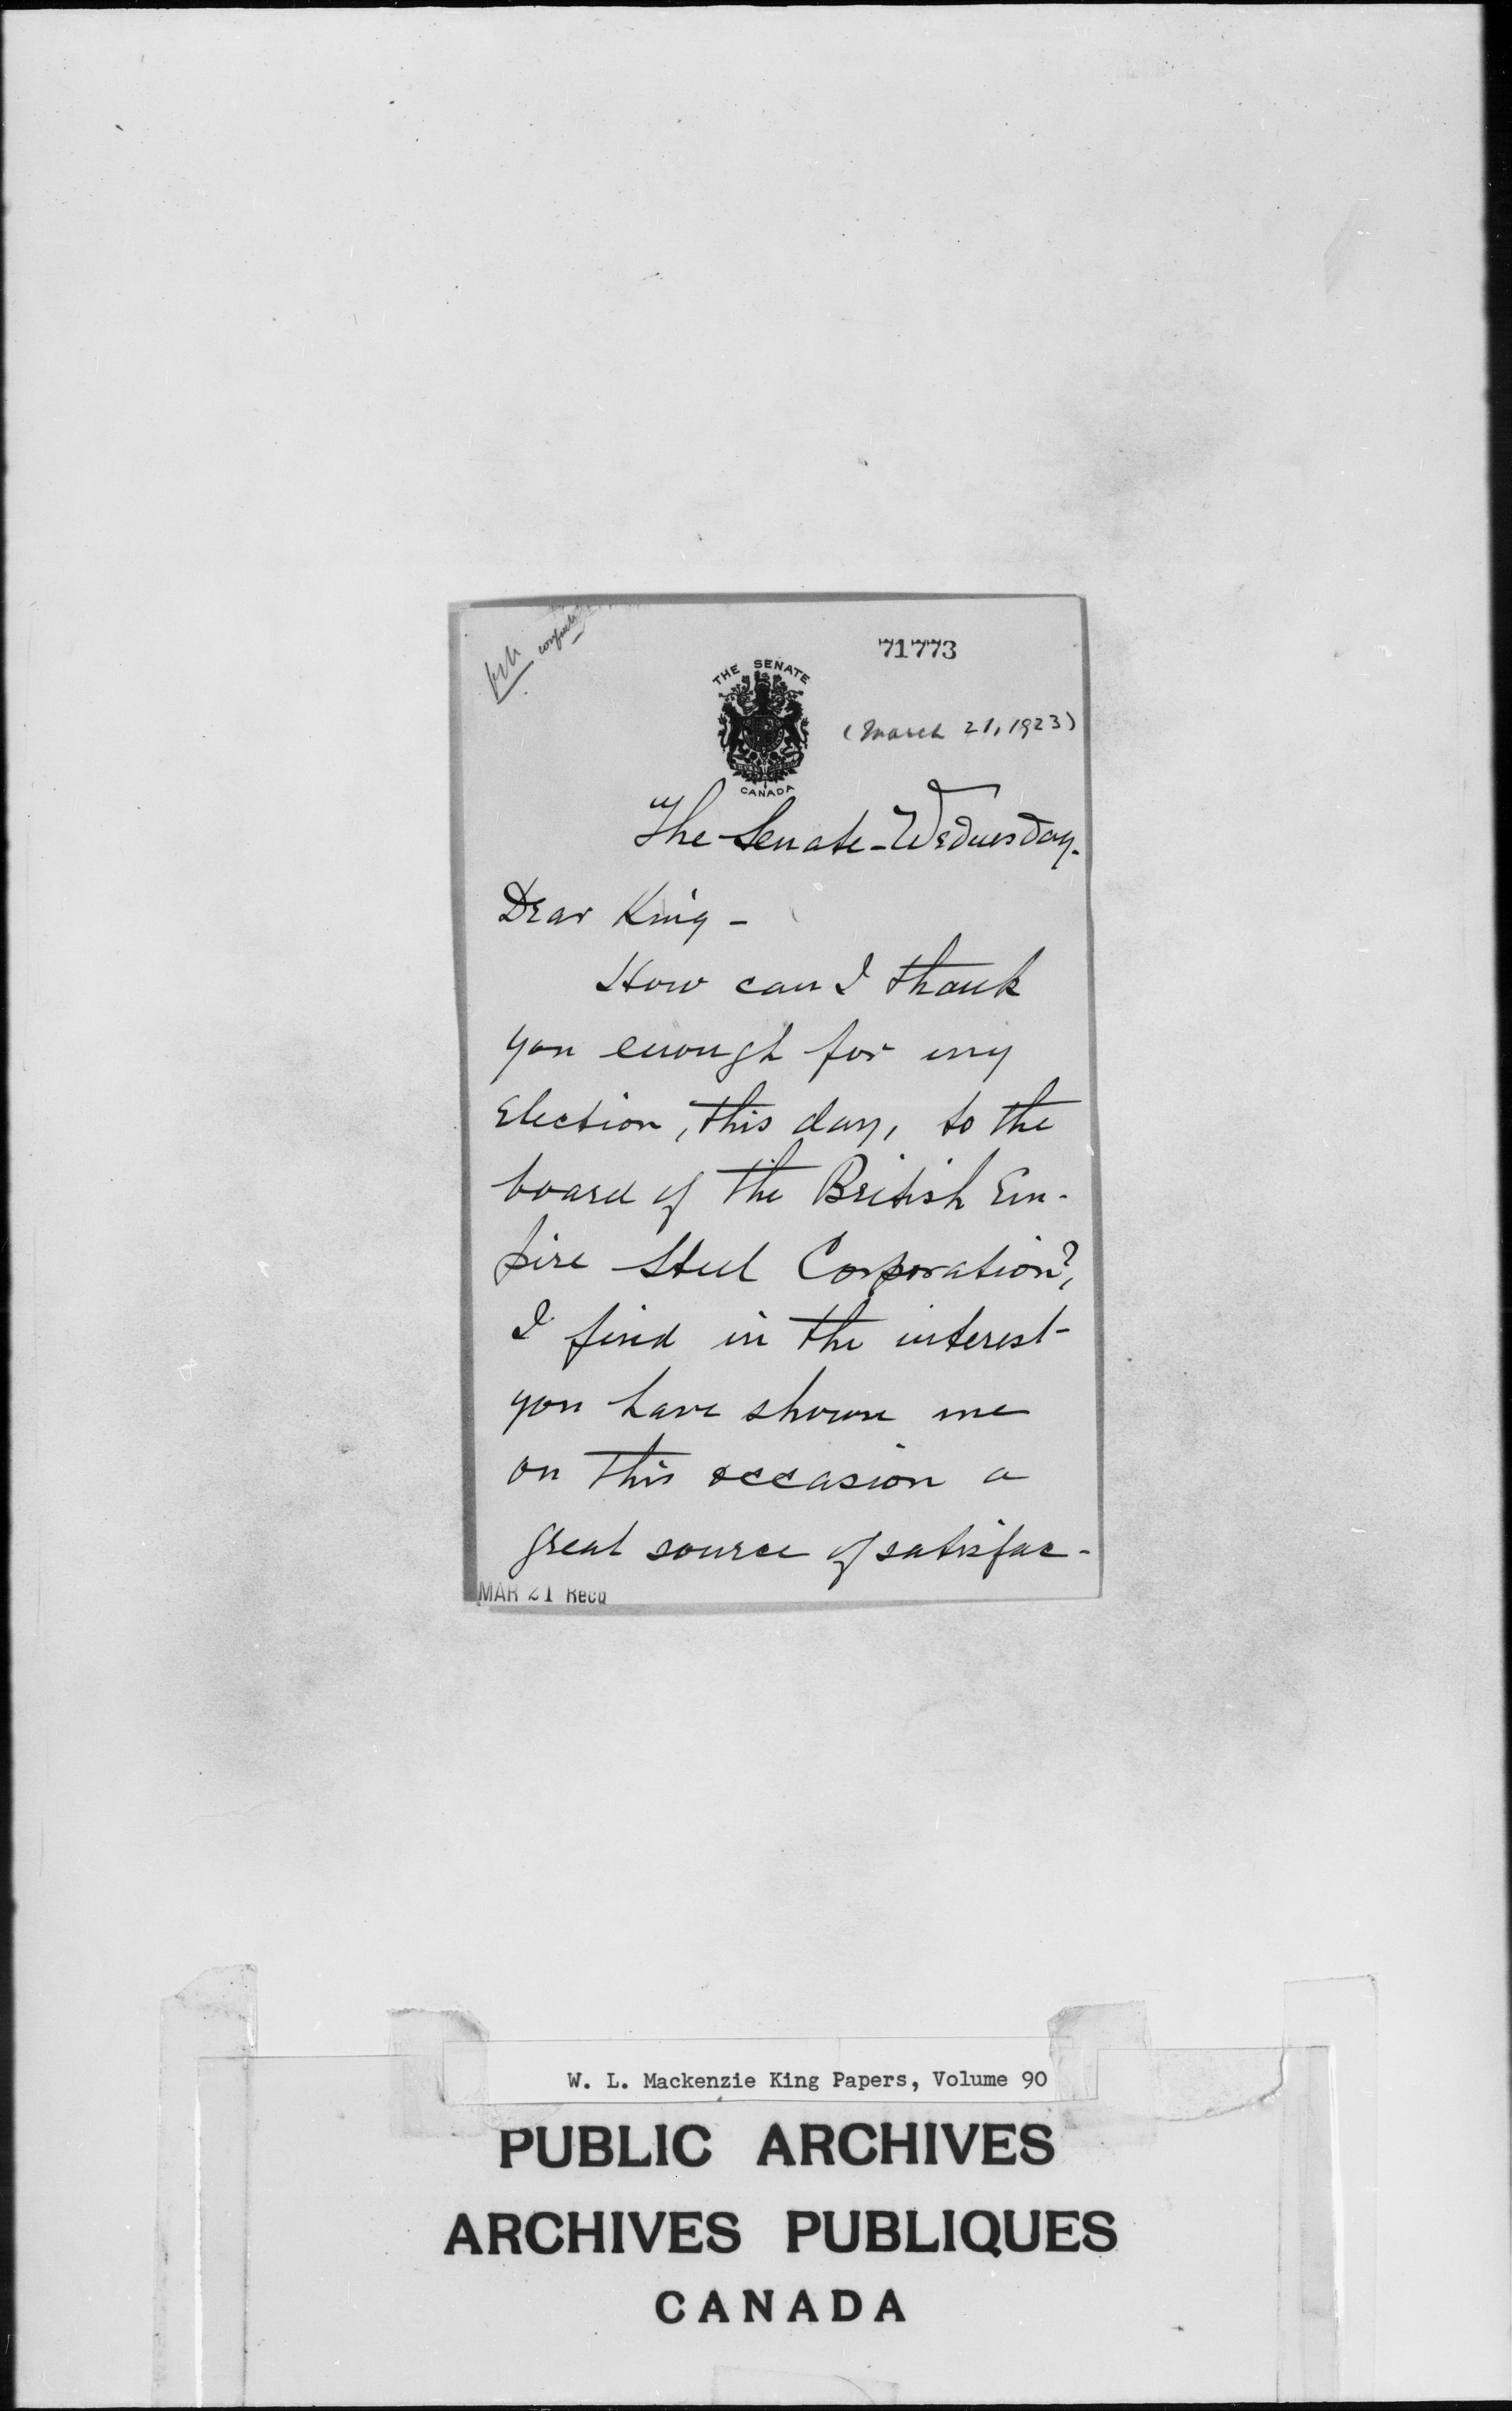 71773
THE SENATE
CANADA
(March 21, 1923)
The Senate - Wednesday.
Dear King -
How can I thank
you enough for my
Election, this day, to the
board of the British Em-
pire Steel Corporation?,
I find in the interest
you have shown me
on this occasion a
great source of satisfac-
MAR 21 Recd
W. L. Mackenzie King Papers, Volume 90
PUBLIC ARCHIVES
ARCHIVES PUBLIQUES
CANADA